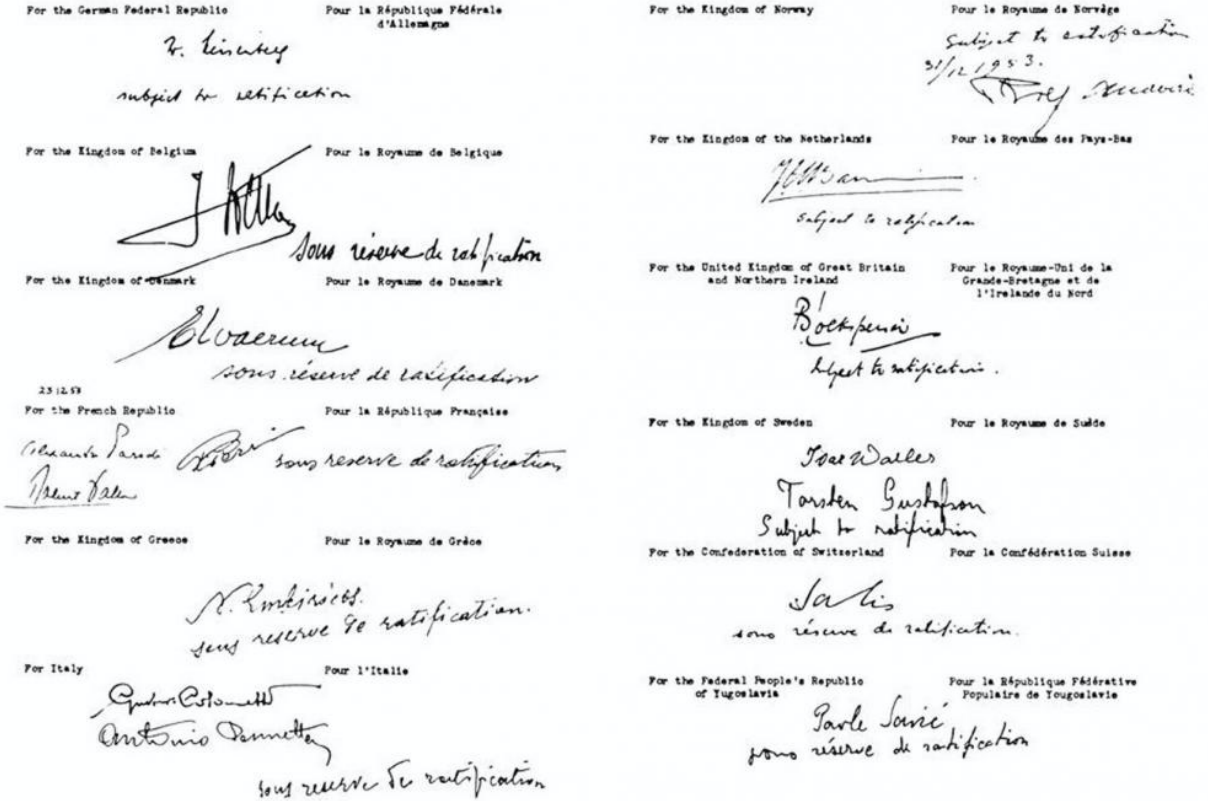 For the German Federal Republic
Pour la République Fédérale
d'Allemagne
subject to ratification
For the Kingdom of Belgium
Pour le Royaume de Belgique
sous réserve de ratification
For the Kingdom of Denmark
Pour le Royaume de Danemark
sous réserve de ratification
23 12 53
For the French Republic
Pour la République Française
Alexandre Parodi
sous reserve de ratification
Robert
For the Kingdom of Greece
Pour le Royaume de Grèce
sous reserve de ratification.
For Italy
Pour l'Italie
Gustavo Colonnetti
Antonio Pennetta
sous reserve de ratification
For the Kingdom of Norway
Pour le Royaume de Norvège
Subject to ratification
31/12 1953.
For the Kingdom of the Netherlands
Pour le Royaume des Pays-Bas
subject to ratification
For the United Kingdom of Great Britain
and Northern Ireland
Pour le Royaume-Uni de la
Grande-Bretagne et de
l'Irelande du Nord
subject to ratification.
For the Kingdom of Sweden
Pour le Royaume de Suède
Ivar Waller
Torsten Gustafson
Subject to ratification
For the Confederation of Switzerland
Pour la Confédération Suisse
Salis
sous réserve de ratification.
For the Federal People's Republic
of Yugoslavia
Pour la République Fédérative
Populaire de Yougoslavie
Pavle Savić
sous réserve de ratification